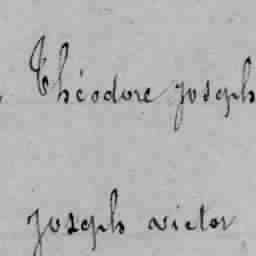 Théodore joseph
joseph victor